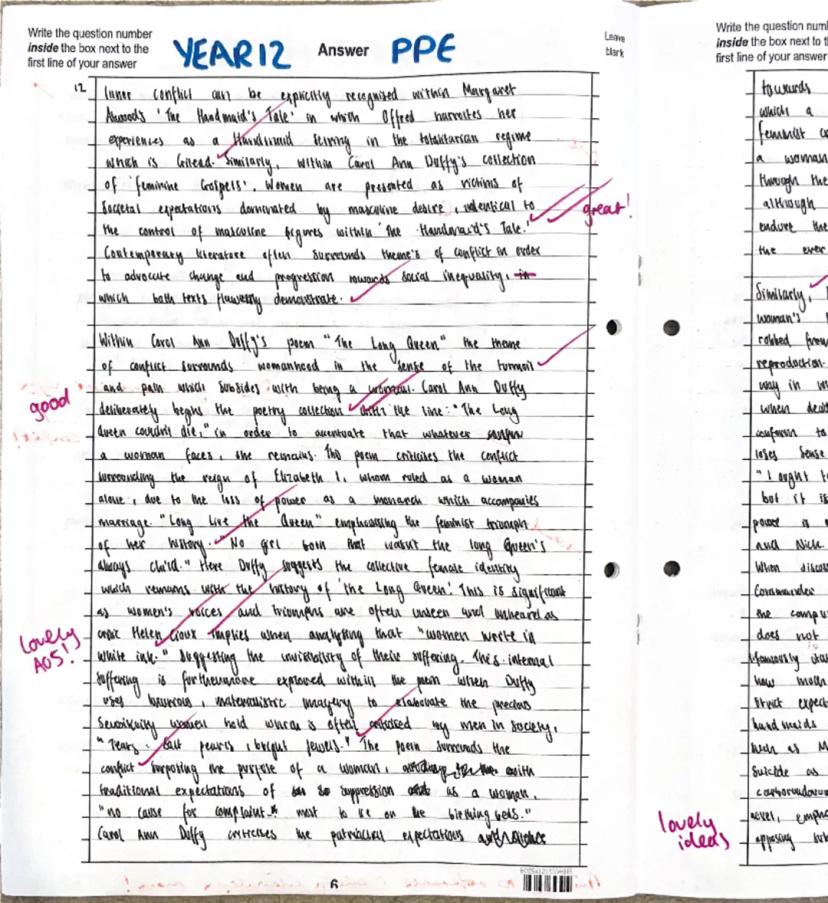 Write the question number
inside the box next to the
first line of your answer
YEAR 12 Answer PPE
Leave
blark
12
Inner conflict can be explicitly recognised within Margaret
Atwoods 'The Handmaid's Tale' in which Offred narrates her
experiences as a Handmaid serving in the totalitarian regime
which is Gilead. Similarly, within Carol Ann Duffy's collection
of 'Feminine Gospels'. Women are presented as victims of
societal expectations dominated by masculine desire, identical to
great!
the control of masculine figures within 'The Handmaid's Tale.'
Contemporary literature often surrounds theme's of conflict in order
to advocate change and progression towards social inequality,
which both texts demonstrate.
Within Carol Ann Duffy's poem "The Long Queen" the theme
of conflict surrounds womanhood in the sense of the turmoil
and pain which subsides with being a woman. Carol Ann Duffy
good
deliberately begins the poetry collection with the line: "The Long
Queen couldn't die," in order to accentuate that whatever
a woman faces, she remains. The poem criticises the conflict
surrounding the reign of Elizabeth I, whom ruled as a woman
alone, due to the loss of power as a monarch which accompanies
marriage. "Long Live the Queen" emphasising the feminist triumph
of her history. "No girl born that wasn't the Long Queen's
always child." Here Duffy suggests the collective female identity
which remains with the history of 'the Long Queen.' This is significant
as women's voices and triumphs are often unseen and unheard as
lovely
AO5!
critic Helen Cioux implies when analysing that "women write in
white ink." Suggesting the invisibility of their suffering. This internal
suffering is furthermore explored within the poem when Duffy
uses luxurious, materialistic imagery to elaborate the precious
sensitivity women hold which is often by men in society,
"Tears. salt pearls, bright jewels." The poem surrounds the
conflict surposing the purpose of a woman, with
traditional expectations of suppression as a women.
"no cause for complaint most to lie on the birthing beds."
Carol Ann Duffy criticises the patriarchal expectations
6
Write the question num
inside the box next to t
first line of your answer
towards
which a
feminist
a woman
through the
although
endure the
the ever
Similarly,
woman's
robbed from
reproduction.
way in
when
conform to
loses sense
"I ought t
but it is
power is
and Nick.
When discus
Commander
the
does not
how
strict expect
handmaids
such as M
suicide as
lovely
ideas
novel, empha
opposing